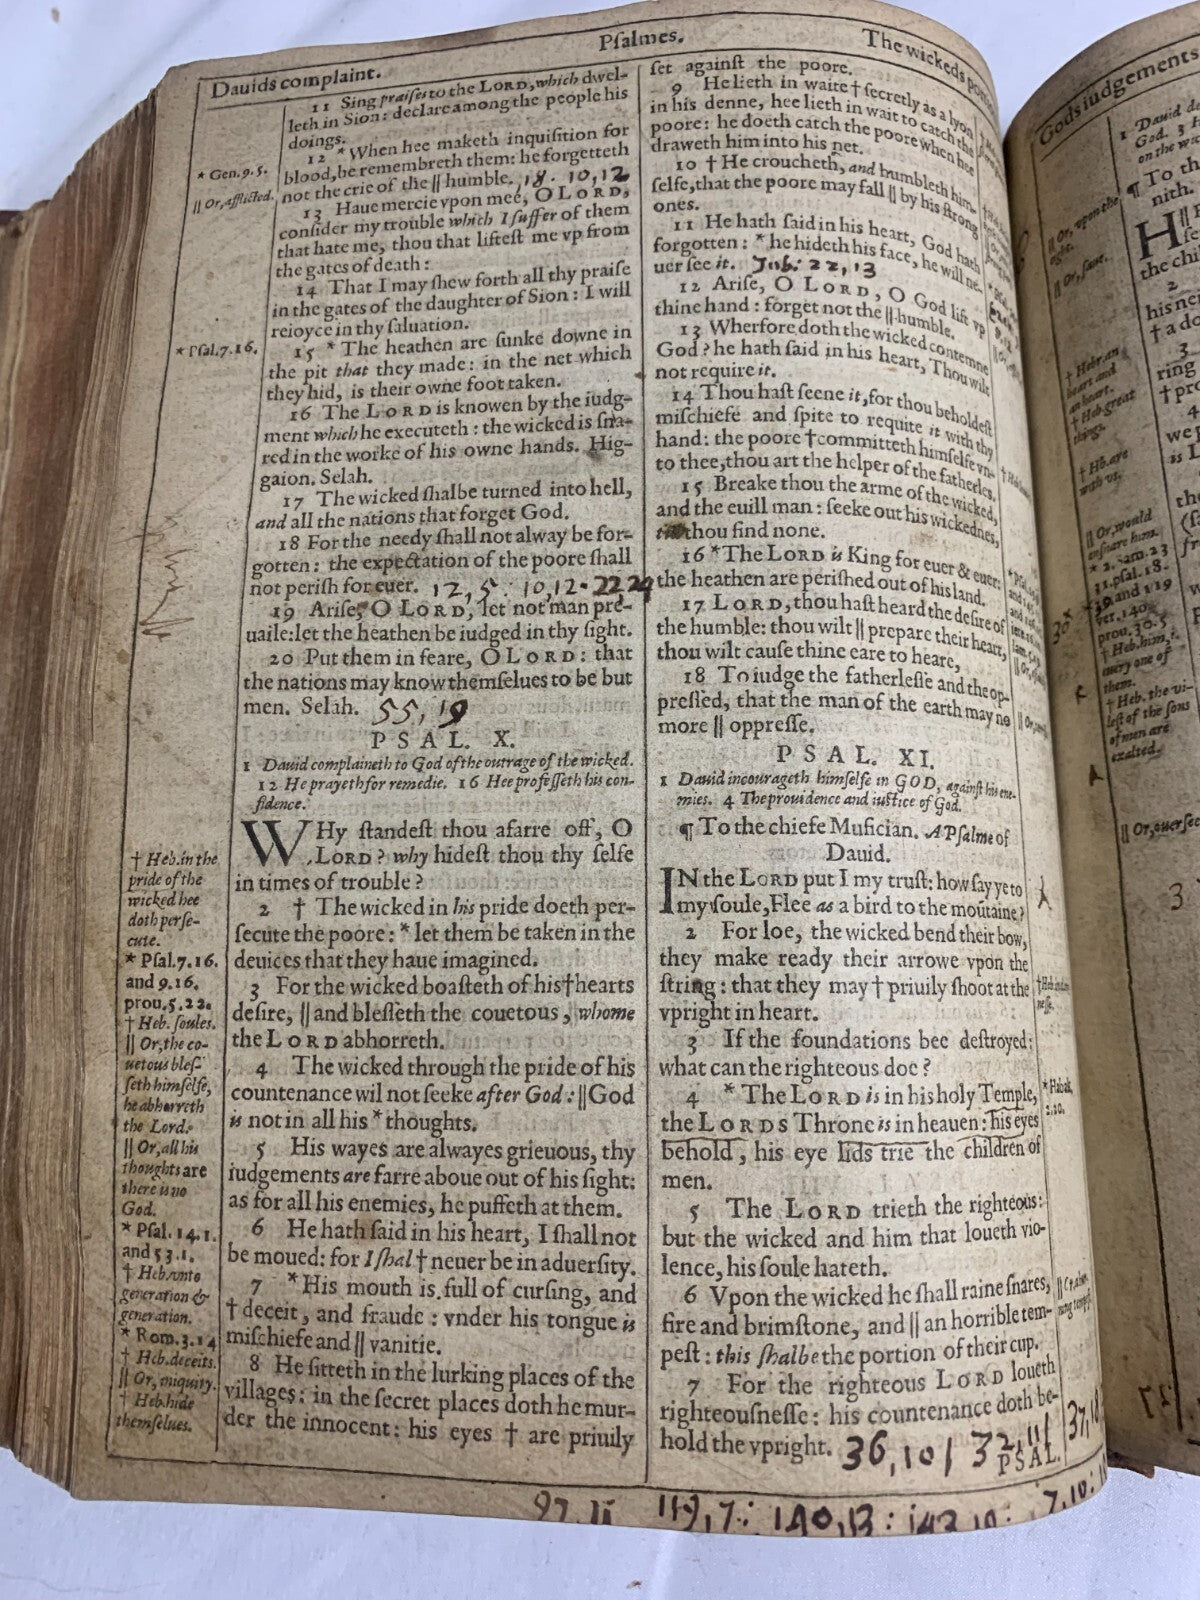 Dauids complaint.
Psalmes.
The wickeds
11 Sing praises to the LORD, which dwel-
leth in Sion: declare among the people his
doings.
12 *When hee maketh inquisition for
blood, he remembreth them: he forgetteth
not the crie of the || humble. 18. 10,12
13 Haue mercie vpon mee, O LORD,
consider my trouble which I suffer of them
that hate me, thou that liftest me vp from
the gates of death:
14 That I may shew forth all thy praise
in the gates of the daughter of Sion: I will
reioyce in thy saluation.
15 * The heathen are sunke downe in
the pit that they made: in the net which
they hid, is their owne foot taken.
16 The LORD is knowen by the iudg-
ment which he executeth: the wicked is sna-
red in the worke of his owne hands. Hig-
gaion. Selah.
17 The wicked shalbe turned into hell,
and all the nations that forget God.
18 For the needy shall not alway be for-
gotten: the expectation of the poore shall
not perish for euer. 12,5: 10,12. 22 24
19 Arise, O LORD, let not man pre-
uaile: let the heathen be iudged in thy sight.
20 Put them in feare, O LORD: that
the nations may know themselues to be but
men. Selah. 55,19
PSAL. X.
1 Dauid complaineth to God of the outrage of the wicked.
12 He prayeth for remedie. 16 Hee professeth his con-
fidence.
WHy standest thou afarre off, O
LORD? why hidest thou thy selfe
in times of trouble?
2 † The wicked in his pride doeth per-
secute the poore: * let them be taken in the
deuices that they haue imagined.
3 For the wicked boasteth of his † hearts
desire, || and blesseth the couetous, whome
the LORD abhorreth.
4 The wicked through the pride of his
countenance wil not seeke after God: || God
is not in all his * thoughts.
5 His wayes are alwayes grieuous, thy
iudgements are farre aboue out of his sight:
as for all his enemies, he puffeth at them.
6 He hath said in his heart, I shall not
be moued: for I shal † neuer be in aduersity.
7 *His mouth is full of cursing, and
† deceit, and fraude: vnder his tongue is
mischiefe and || vanitie.
8 He sitteth in the lurking places of the
villages: in the secret places doth he mur-
der the innocent: his eyes † are priuily
* Gen.9.5.
|| Or, afflicted.
* Psal.7.16.
† Heb. in the
pride of the
wicked hee
doth perse-
cute.
* Psal.7.16.
and 9.16.
prou.5.22.
† Heb. soules.
|| Or, the co-
uetous bles-
seth himselfe,
he abhorreth
the Lord.
|| Or, all his
thoughts are
there is no
God.
* Psal.14.1.
and 53.1.
† Heb. vnto
generation &
generation.
* Rom.3.14
† Heb. deceits.
|| Or, iniquity.
† Heb. hide
themselues.
set against the poore.
9 He lieth in waite † secretly as a lyon
in his denne, hee lieth in wait to catch the
poore: he doeth catch the poore when hee
draweth him into his net.
10 † He croucheth, and humbleth him-
selfe, that the poore may fall || by his strong
ones.
11 He hath said in his heart, God hath
forgotten: * he hideth his face, he will ne-
uer see it. Job: 22,13
12 Arise, O LORD, O God lift vp
thine hand: forget not the || humble.
13 Wherfore doth the wicked contemne
God? he hath said in his heart, Thou wilt
not require it.
14 Thou hast seene it, for thou beholdest
mischiefe and spite to requite it with thy
hand: the poore † committeth himselfe vn-
to thee, thou art the helper of the fatherles.
15 Breake thou the arme of the wicked,
and the euill man: seeke out his wickednes,
till thou find none.
16 *The LORD is King for euer & euer:
the heathen are perished out of his land.
17 LORD, thou hast heard the desire of
the humble: thou wilt || prepare their heart,
thou wilt cause thine eare to heare,
18 To iudge the fatherlesse and the op-
pressed, that the man of the earth may no
more || oppresse.
PSAL. XI.
1 Dauid incourageth himselfe in GOD, against his ene-
mies. 4 The prouidence and iustice of God.
¶ To the chiefe Musician. A Psalme of
Dauid.
IN the LORD put I my trust: how say ye to
my soule, Flee as a bird to the moūtaine?
2 For loe, the wicked bend their bow,
they make ready their arrowe vpon the
string: that they may † priuily shoot at the
vpright in heart.
3 If the foundations bee destroyed:
what can the righteous doe?
4 * The LORD is in his holy Temple,
the LORDS Throne is in heauen: his eyes
behold, his eye lids trie the children of
men.
5 The LORD trieth the righteous:
but the wicked and him that loueth vio-
lence, his soule hateth.
6 Vpon the wicked he shall raine snares,
fire and brimstone, and || an horrible tem-
pest: this shalbe the portion of their cup.
7 For the righteous LORD loueth
righteousnesse: his countenance doth be-
hold the vpright. 36,10 | 32,11
PSAL.
37,18
* Habak.
2.20.
97. 11 119,7: 140,13: 143,10: 7,10:
Gods iudgements
¶ To th
nith.
|| Or, vpon the
|| Or, saue.
† Hebr. an
heart and
an heart.
† Heb. great
things.
† Hb. are
with vs.
|| Or, would
ensnare him.
* 2. Sam. 23
ver. 140.
prou. 30.5
† Heb. him,
euery one of
them.
† Heb. the vi-
lest of the sons
of men are
exalted.
|| Or, ouersee